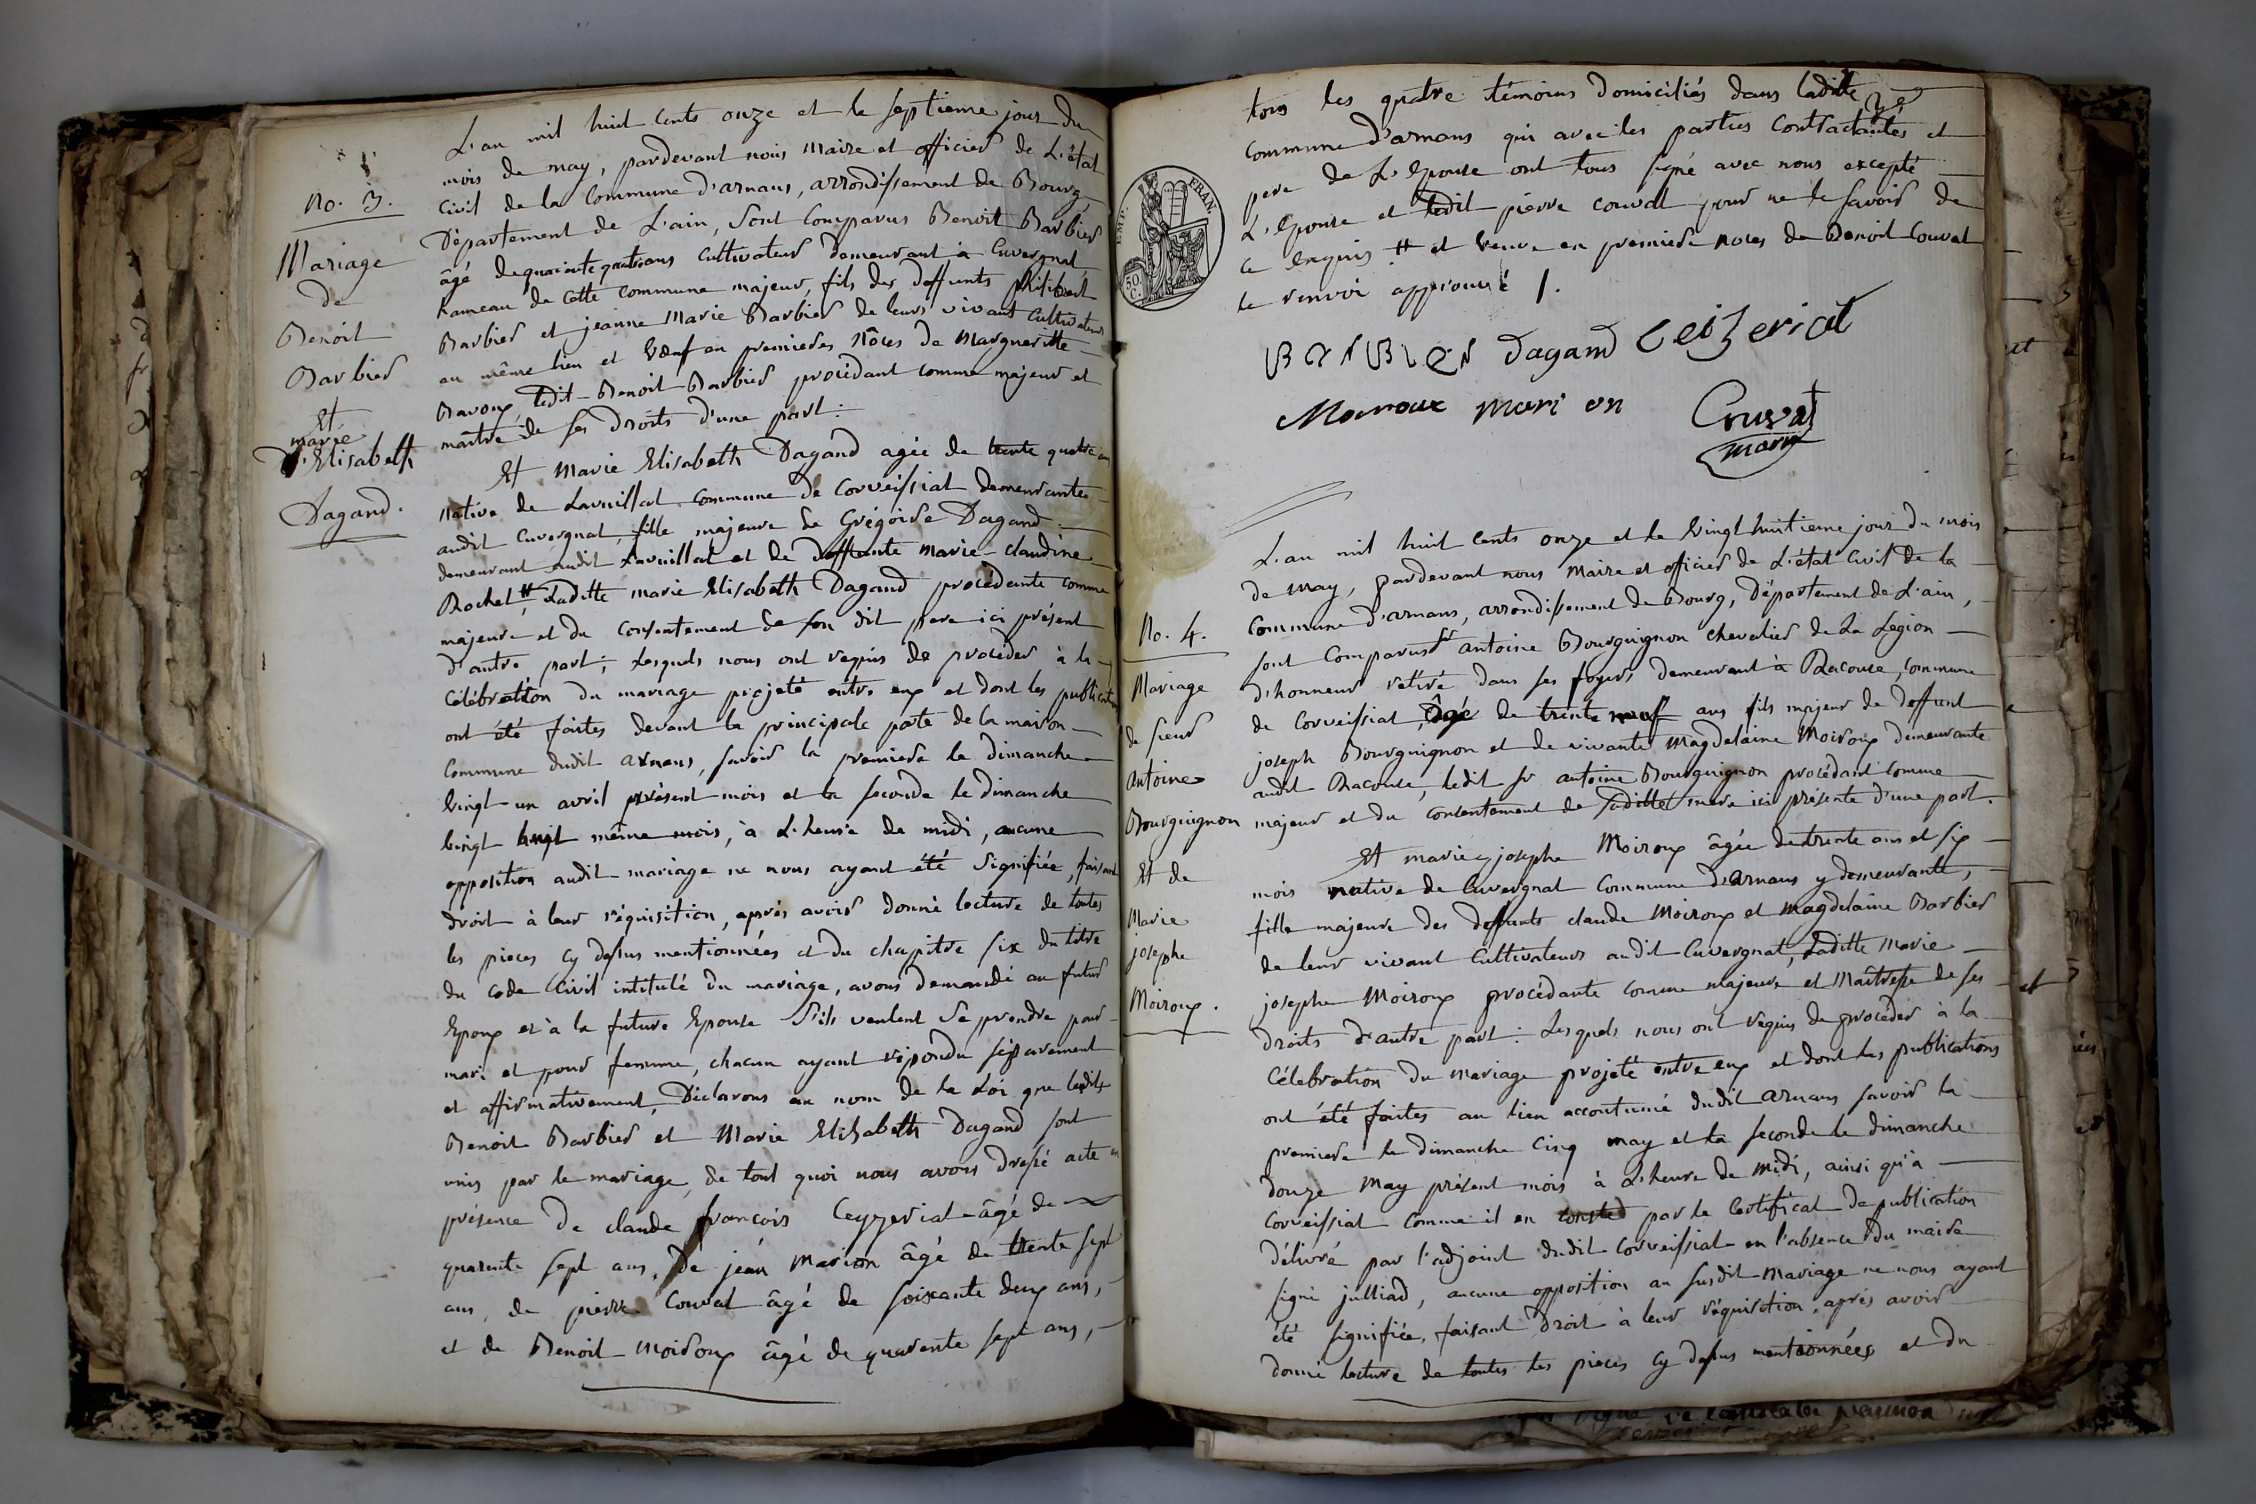 No. 3.
Mariage
de
Benoit
Barbier
Et
marie
D'. Elisabeth
Dagand.
L'an mil huit cents onze et le septieme jour du
mois de may, pardevant nous Maire et officier de L'état
Civil de la Commune d'arnans, arrondissement de Bourg,
Département de L'ain, Sont Comparus Benoit Barbier
âgé de ans Cultivateur demeurant à Cuvergnat
hameau de Cette Commune majeur, fils des deffunts philibert
Barbier et jeanne Marie Barbier de leurs vivant Cultivateurs
au même lieu et Vœuf en premieres Nôces de Margueritte
Bavoux, ledit Benoit Barbier procédant comme majeur et
maitre de ses Droits d'une part :
Et Marie Elisabeth Dagand agée de trente quatre ans
Native de Lavillat Commune de Corveissiat demeurante
audit Cuvergnat, fille majeure de Grégoire Dagand
demeurant audit Lavillat et de deffunte Marie-claudine
Rochet # Laditte marie Elisabeth Dagand procédante comme
majeure et du Consentement de son dit pere ici présent
d'autre part; Lesquels nous ont requis de procéder à la
Célébration du mariage projeté entre eux et dont les publications
ont été faites devant la principale porte de la maison
Commune dudit arnans, savoir la premiere le dimanche
vingt-un avril présent mois et la seconde le dimanche
vingt huit même mois, à L'heure de midi, aucune
opposition audit mariage ne nous ayant été Signifiée, faisant
droit à leur réquisition, aprés avoir donné lecture de toutes
les pieces cy dessus mentionnées et du chapitre six du titre
du code Civil intitulé du mariage, avons demandé au futur
Epoux et à la future Epouse S'ils veulent Se prendre pour
mari et pour femme, chacun ayant répondu séparement
et affirmativement, Déclarons au nom de la Loi que ledit
Benoit Barbier et Marie Elisabeth Dagand sont
unis par le mariage, de tout quoi nous avons dressé acte en
présence de claude françois Ceyzeriat âgé de
quarente sept ans, de jean Marion âgé de trente sept
ans, de pierre Couvat âgé de soixante deux ans,
et de Benoit Moiroux âgé de quarente sept ans,
tous les quatre témoins domiciliés dans laditte
Commune d'arnans qui avec les parties Contractantes et
pere de L'Epouse ont tous signé avec nous excepté
L'Epouse et ledit pierre couvat pour ne le savoir de
ce Enquis # et veuve en premiere noces de Benoit Couvat
le renvoi approuvé /.
EMP. FRAN.
50 C.
BARBIER Dagand Ceizeriat
Moiroux Mari on Cruvat
maire
No. 4.
Mariage
de sieur
Antoine
Bourguignon
Et de
Marie
josephe
Moiroux.
L'an mil huit cents onze et le vingt huitieme jour du mois
de May, pardevant nous Maire et officier de L'état Civil de la
Commune d'arnans, arrondissement de Bourg, Département de L'ain,
sont Comparus sr antoine Bourguignon chevalier de La Légion
d'honneur retiré dans ses foyers demeurant à Racouse, commune
de Corveissiat, âgé de trente neuf ans fils majeur de deffunt
joseph Bourguignon et de vivante Magdelaine Moiroux demeurante
audit Racouse, ledit sr antoine Bourguignon procédant comme
majeur et du consentement de saditte mere ici présente d'une part.
Et marie josephe Moiroux âgée de trente ans et six
mois native de Cuvergnat Commune d'arnans y demeurante,
fille majeure des deffunts claude Moiroux et Magdelaine Barbier
de leur vivant Cultivateurs audit Cuvergnat, Laditte Marie
josephe Moiroux procédante comme majeure et Maîtresse de ses
droits d'autre part : Lesquels nous ont requis de procéder à la
Célebration du mariage projeté entre eux et dont les publications
ont été faites au lieu accoutumé dudit arnans savoir la
premiere le dimanche Cinq may et la seconde le dimanche
douze May présent mois à L'heure de midi, ainsi qu'à
Corveissiat Comme il en conste par le Certificat de publication
délivré par l'adjoint dudit Corveissiat en l'absence du maire
signé julliard, aucune opposition au susdit Mariage ne nous ayant
été signifiée, faisant droit à leur réquisition, aprés avoir
donné lecture de toutes les pieces cy dessus mentionnées et du